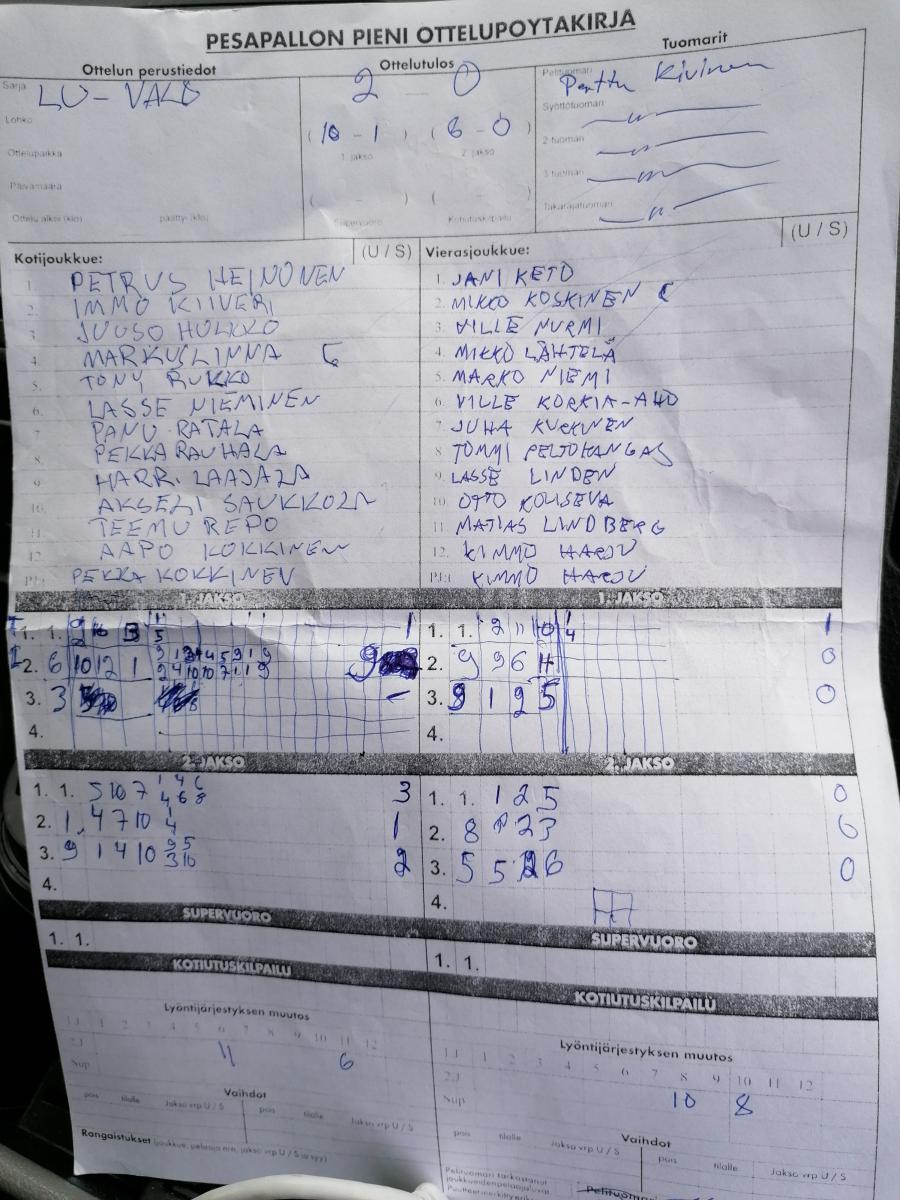 PESAPALLON PIENI OTTELUPOYTAKIRJA
Ottelun perustiedot
Ottelutulos
Tuomarit
Sarja
LU-VALO
2 - 0
Pelituomari
Perttu Kivinen
Lohko
(10 - 1) (6 - 0)
Syöttötuomari
1. jakso
2. jakso
2-tuomari
Ottelupaikka
3-tuomari
Päivämäärä
Takarajatuomari
Ottelu alkoi (klo)
päättyi (klo)
Supervuoro
Kotiutuskilpailu
Kotijoukkue:
(U / S)
Vierasjoukkue:
(U / S)
1. PETRUS HEINONEN
1. JANI KETO
2. IMMO KIIVERI
2. MIKKO KOSKINEN C
3. JUUSO HULKKO
3. VILLE NURMI
4. MARKUS LINNA C
4. MIKKO LÄHTELÄ
5. TONY RUKKO
5. MARKO NIEMI
6. LASSE NIEMINEN
6. VILLE KORKIA-AHO
7. PANU RATALA
7. JUHA KURKINEN
8. PEKKA RAUHALA
8. TOMMI PELTOKANGAS
9. HARRI LAAJALA
9. LASSE LINDEN
10. AKSELI SAUKKOLA
10. OTTO KOUSEVA
11. TEEMU REPO
11. MATIAS LINDBERG
12. AAPO KOKKINEN
12. KIMMO HARJU
PEKKA KOKKINEN
KIMMO HARJU
1. JAKSO
1. JAKSO
1. 1.
1
1. 1. 2 11 10 1 4
1
2. 6 10 12 1
9
2. 9 9 6 4
0
3. 3
-
3. 9 1 9 5
0
4.
4.
2. JAKSO
2. JAKSO
1. 1. 5 10 7 1 4 6
4 6 8
3
1. 1. 1 2 5
0
2. 1 4 7 10 1 4
1
2. 8 1 2 3
0
3. 9 1 4 10 9 5
3 10
2
3. 5 5 6
0
4.
4.
SUPERVUORO
SUPERVUORO
1. 1.
1. 1.
KOTIUTUSKILPAILU
KOTIUTUSKILPAILU
Lyöntijärjestyksen muutos
Lyöntijärjestyksen muutos
1J 1 2 3 4 5 6 7 8 9 10 11 12
1J 1 2 3 4 5 6 7 8 9 10 11 12
2J 11 6
2J
Sup
Sup 10 8
Vaihdot
Vaihdot
pois tilalle Jakso vrp U / S pois tilalle Jakso vrp U / S
pois tilalle Jakso vrp U / S pois tilalle Jakso vrp U / S
Rangaistukset (joukkue, pelaaja nro, jakso vrp U / S ja syy)
Pelituomari tarkastanut
joukkueiden pelaajaluvat